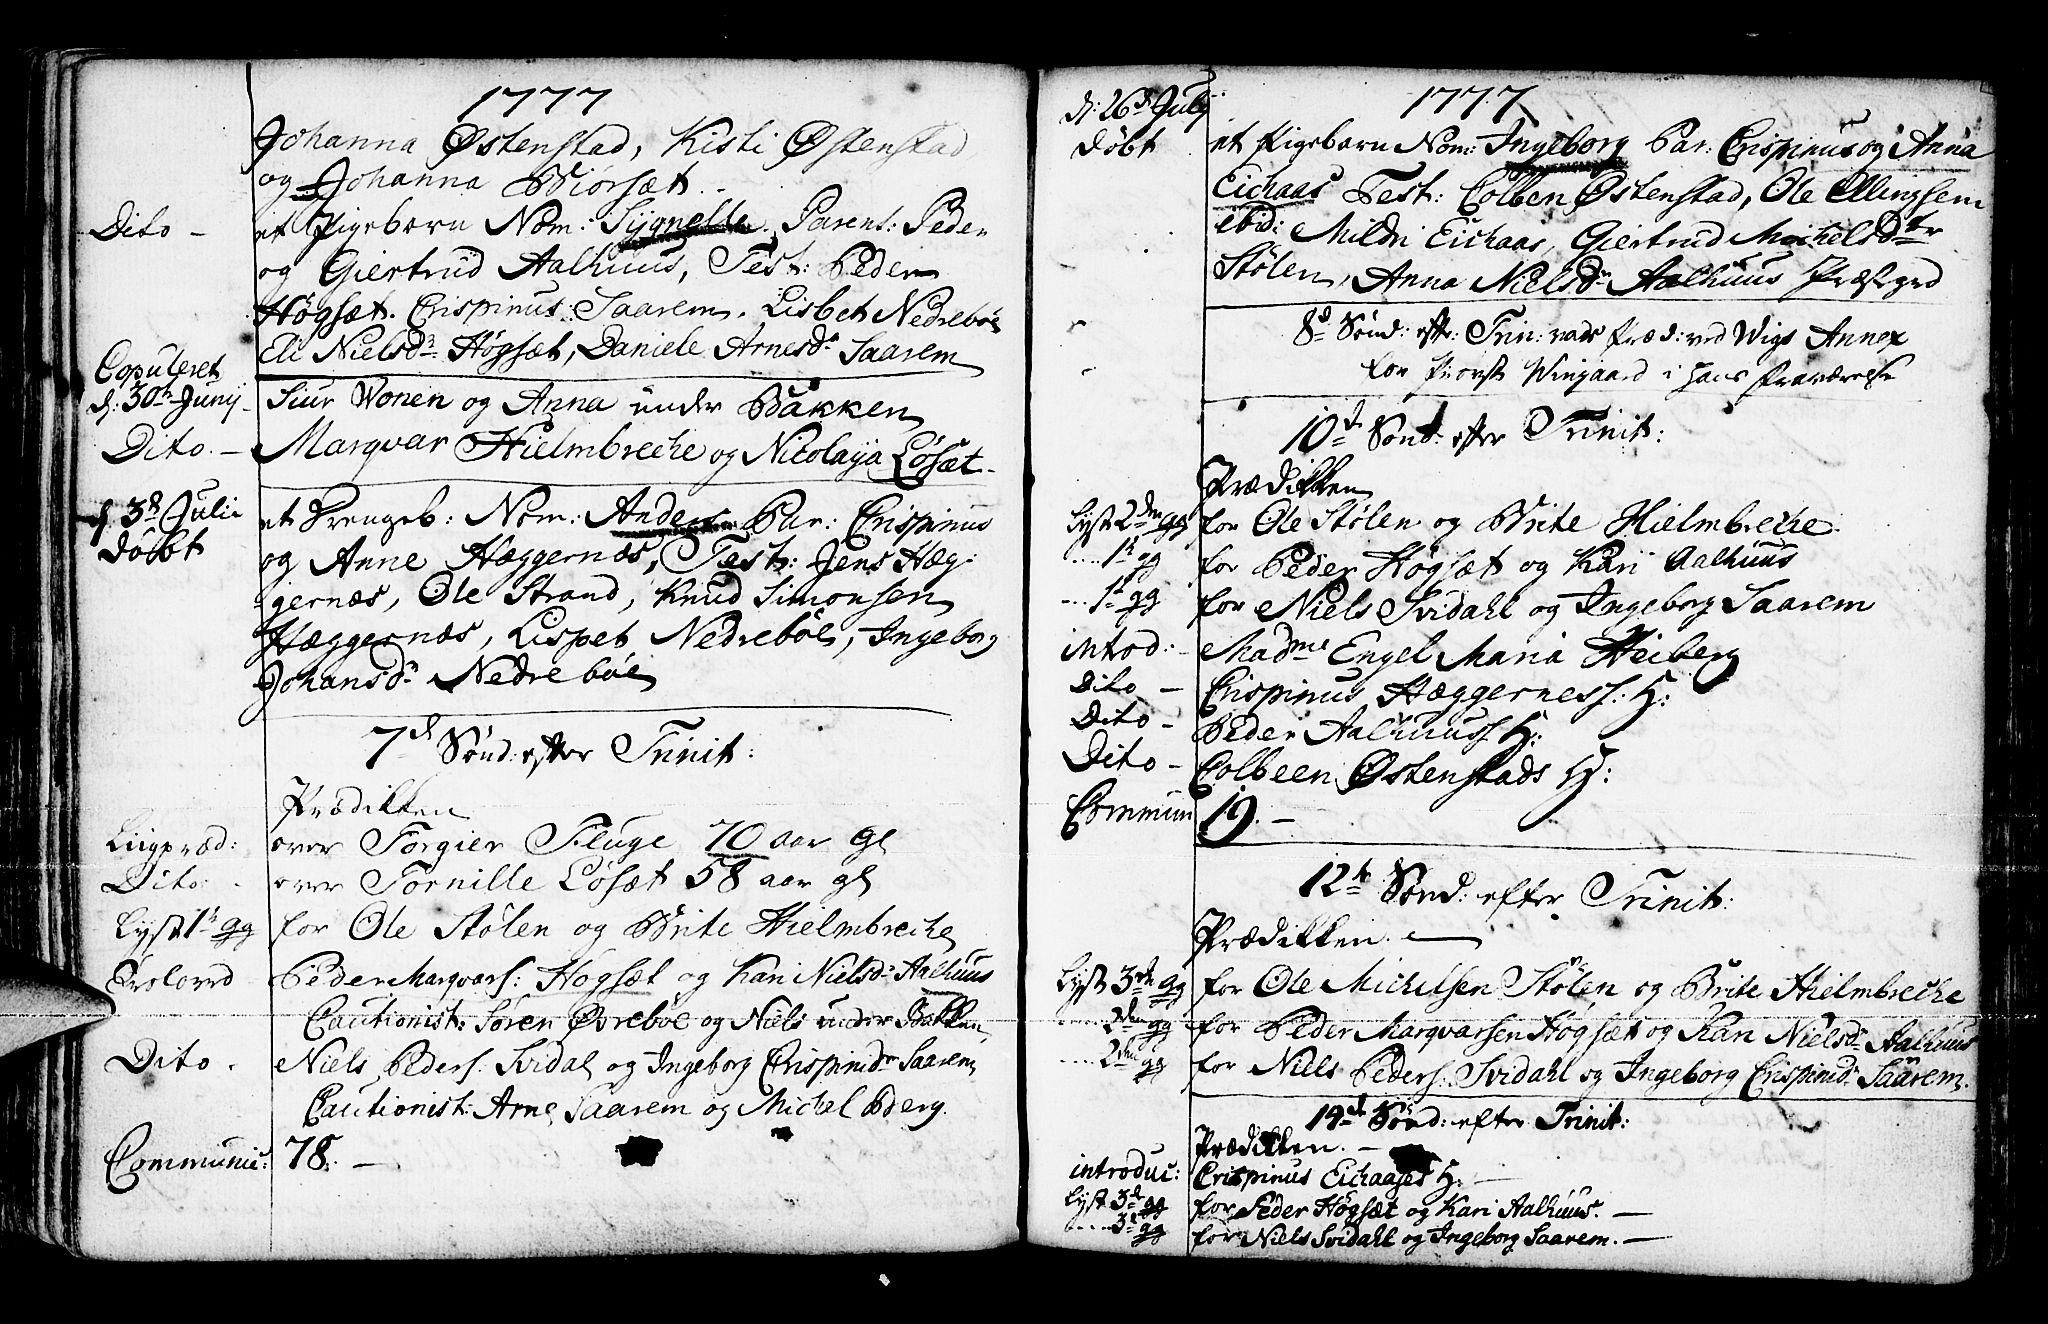 1777
Johanna Østenstad, Kisti Østenstad
og Johanna Biørsæt.
Dito - et Pigebarn Nom: Sygnelle. Parent: Peder
og Giertrud Aalhuus, Test: Peder
Høgsæt. Crispinus Saarem, Lisbet Nedrebøe
Eli Nielsdr Høgsæt, Daniele Arnesdr Saarem
Copuleret
d: 30te Junÿ - Siur Wonen og Anna under Bakken
Dito. - Marqvar Hielmbrecke og Nicolaÿa Løsæt -
d. 3de Julii et Drengeb: Nom: Anders Par: Crispinus
døbt og Anne Hæggernæs, Test: Jens Hæg-
gernæs, Ole Strand, Knud Simonsen
Hæggernæs, Lispet Nedrebøe, Ingeborg
Johansdr Nedrebøe
7d Sønd: efter Trinit:
Prædikken
Liigpræd: over Torgier Fluge 70 aar gl
Dito: over Tornille Løsæt 58 aar gl
Lyst 1te gg for Ole Stølen og Brite Hielmbrecke
Trolovd Peder Marqvars: Høgsæt og Kari Nielsdr Aalhuus
Cautionist: Søren Øvrebøe og Niels under Bakken,
Dito. Niels Peders: Svidal og Ingeborg Crispinidr Saarem,
Cautionist: Arne Saarem og Michel Berg.
Communic: 78. -
d: 26de Julÿ 1777
døbt et Pigebarn Nom: Ingeborg Par: Crispinus og Anna
Eichaas Test: Colben Østenstad, Ole Ellingsen
ibid: Mildri Eichaas, Giertrud Michelsdtr
Stølen, Anna Nielsdr Aalhuus Præstgrd
8d Sønd: eftr: Trin: var Præd: ved Wigs Annex
for Provst Wingaard i hans fraværelse
10d Sønd: efter Trinit:
Prædikken
Lyst 2den gg for Ole Stølen og Brite Hielmbrecke
.... 1te gg for Peder Høgsæt og Kari Aalhuus
... 1te gg for Niels Svidahl og Ingeborg Saarem
introd: Madme Engel Maria Heiberg
Dito - Crispinus Hæggerness. H:
Dito - Peder Aalhuuss H:
Dito - Colbeen Østenstads H:
Commun 19. -
12te Sønd: efter Trinit:
Prædikken.
Lyst 3de gg for Ole Michelsen Stølen og Brite Hielmbrecke
..... 2den gg for Peder Marqvarsen Høgsæt og Kari Nielsdr Aalhuus
.... 2den gg for Niels Peders: Svidahl og Ingeborg Crispinidr Saarem.
14d Sønd: efter Trinit:
Prædikken. -
introduc: Crispinus Eichaases H: -
Lyst 3de gg for Peder Høgsæt og Kari Aalhuus. -
.... 3de gg for Niels Svidahl og Ingeborg Saarem. -